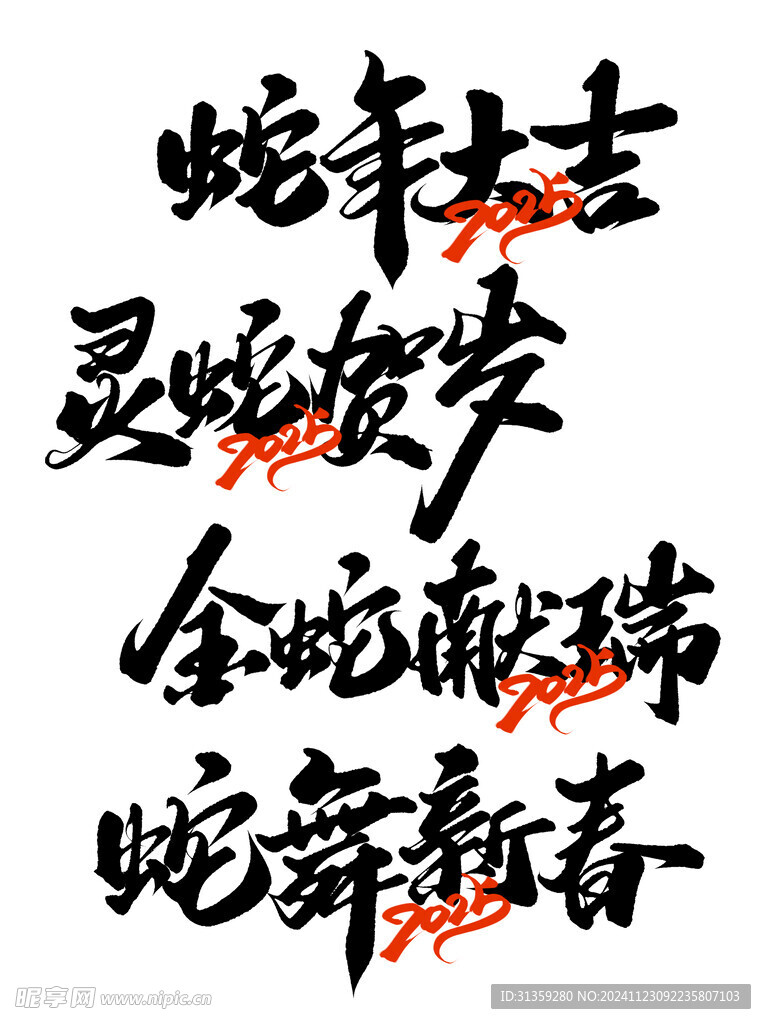 蛇年大吉
2025
灵蛇贺岁
2025
金蛇献瑞
2025
蛇舞新春
2025
昵享网 www.nipic.cn
ID:31359280 NO:20241123092235807103